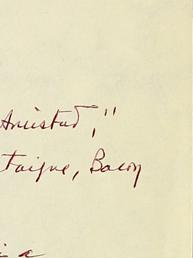 Amistad,"
taigne, Bacon